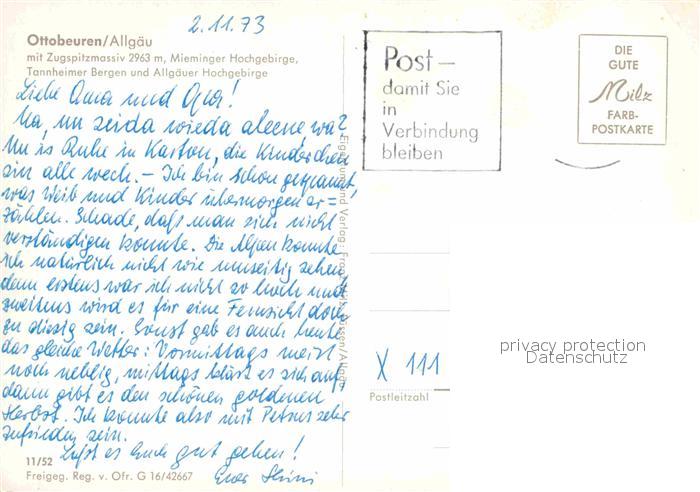 2.11.73
Ottobeuren/Allgäu
mit Zugspitzmassiv 2963 m, Mieminger Hochgebirge,
Tannheimer Bergen und Allgäuer Hochgebirge
Liebe Oma und Opa!
Na, nu seida wieda aleene wa?
Nu is Ruhe in Karton, die Kinderchen
sin alle wech. – Ich bin schon gespannt,
was Weib und Kinder übermorgen er=
zählen. Schade, daß man sich nicht
verständigen konnte. Die Alpen konnte
ich natürlich nicht wie umseitig sehen
denn erstens war ich nicht so hoch und
zweitens wird es für eine Fernsicht doch
zu diesig sein. Sonst gab es auch heute
das gleiche Wetter: Vormittags meist
noch neblig, mittags klärt es sich auf
dann gibt es den schönen goldenen
Herbst. Ich konnte also mit Petrus sehr
zufrieden sein.
Laßt es Euch gut gehen!
Euer
11/52
Freigeg. Reg. v. Ofr. G 16/42667
Eigentum und Verlag:
Post –
damit Sie
in
Verbindung
bleiben
DIE
GUTE
Milz
FARB-
POSTKARTE
X 111
Postleitzahl
privacy protection
Datenschutz